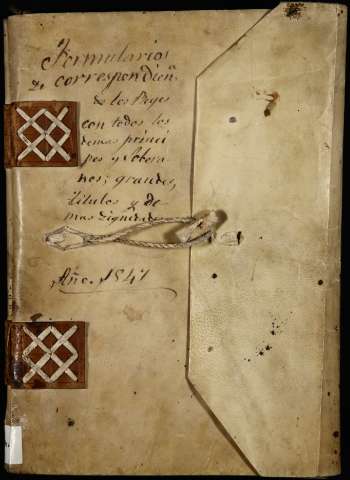 Formularios
de correspondien.ª
de los Reyes
con todos los
demas princi
pes y sobera-
nos; grandes,
titulos y de
mas
Año. 1847